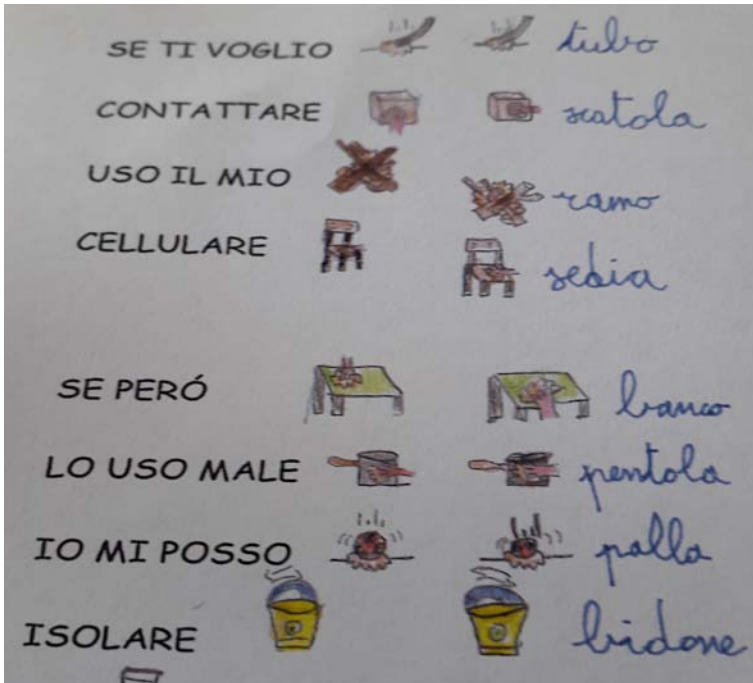 SE TI VOGLIO tubo
CONTATTARE scatola
USO IL MIO ramo
CELLULARE sedia
SE PERÓ banco
LO USO MALE pentola
IO MI POSSO palla
ISOLARE bidone